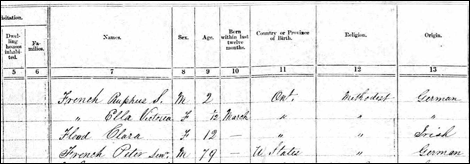 bitation.
Dwelling houses inhabited. Families. Names. Sex. Age. Born within last twelve months. Country or Province of Birth. Religion. Origin.
5 6 7 8 9 10 11 12 13
French Ruphus S. M 2 Ont. Methodist German
" Ella Victoria F 1/12 March " " "
Flood Clara F 12 — " " Irish
French Peter Senr. M 79 — U States " German